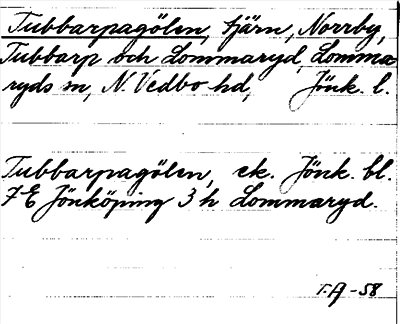 Tubbarpagölen, tjärn, Norrby,
Tubbarp och Lommaryd, Lomma-
ryds sn, N. Vedbo hd, Jönk. l.
Tubbarpagölen, ek. Jönk. bl.
7E Jönköping 3 h Lommaryd.
T.A -58